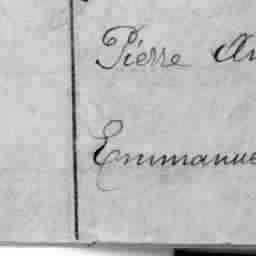 Pierre An
Emmanue